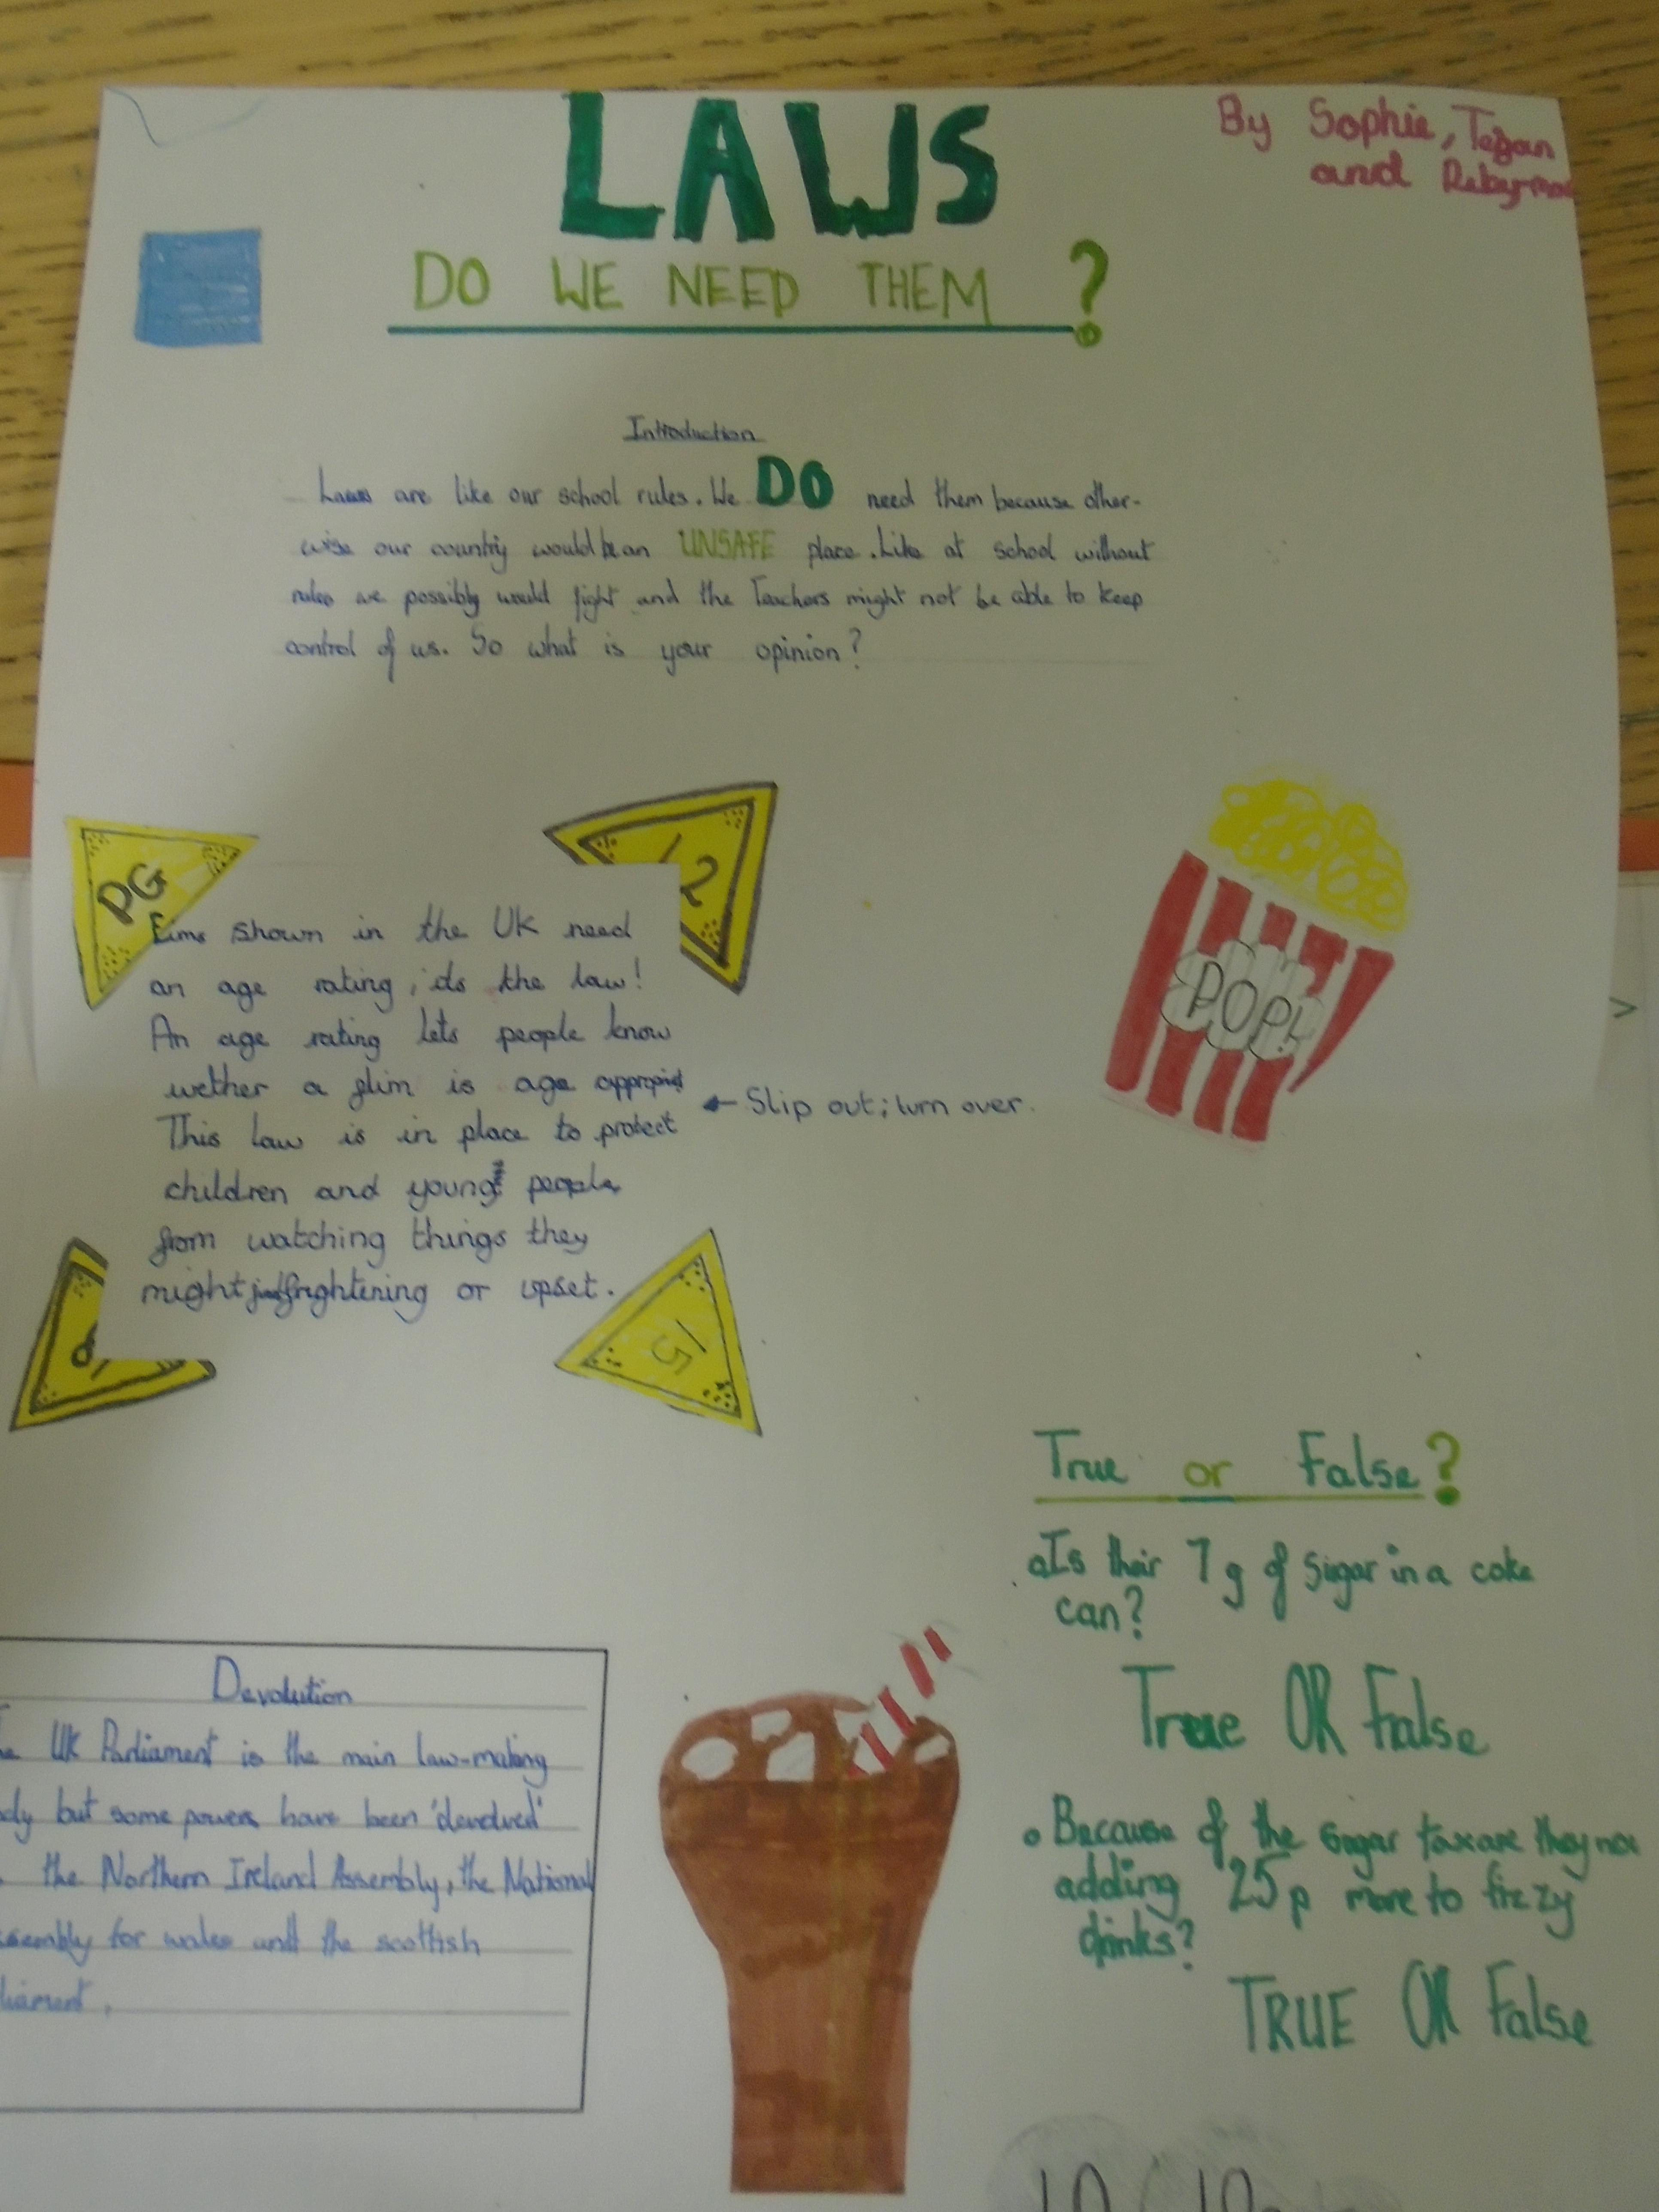 LAWS
DO WE NEED THEM?
By Sophie, Tegan
and
Introduction
Laws are like our school rules. We DO need them because other-
wise our country would be an UNSAFE place. Like at school without
rules we possibly would fight and the Teachers might not be able to keep
control of us. So what is your opinion?
PG
12
shown in the UK need
an age rating, the law!
An age rating lets people know
wether a flim is age
This law is in place to protect
children and young people
from watching things they
might find frightening or upset.
← Slip out; turn over.
POP!
15
True or False?
Is their 7g of Sugar in a coke
can?
True OR False
Because of the sugar tax are they now
adding 25p more to fizzy
drinks?
TRUE OR False
Devolution
UK Parliament is the main law-making
but some powers have been 'devolved'
the Northern Ireland Assembly, the National
for wales and the scottish